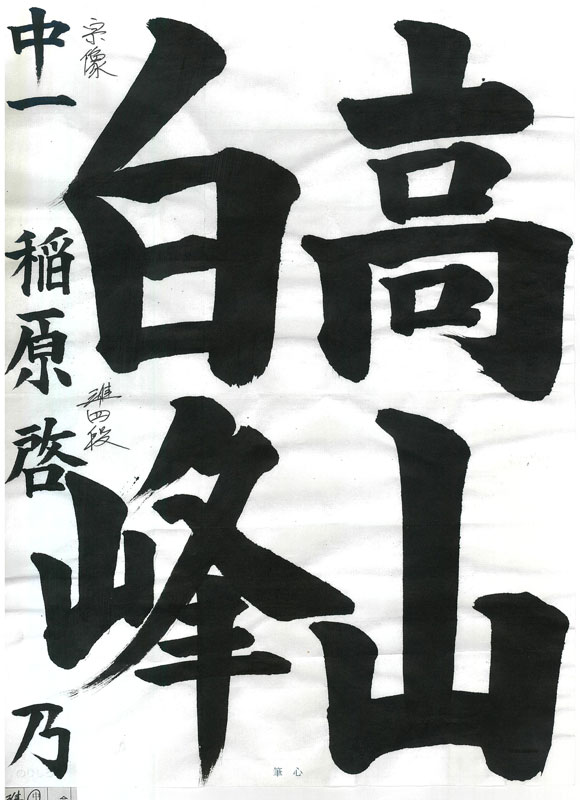 高山
白峰
中一 稲原啓乃
宗像
準四段
筆心